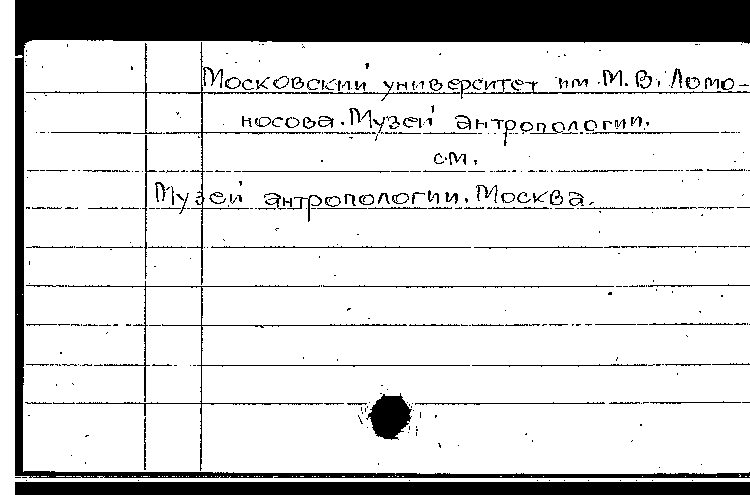 Московский университет им. М. В. Ломо-
носова. Музей антропологии.
см.
Музей антропологии. Москва.